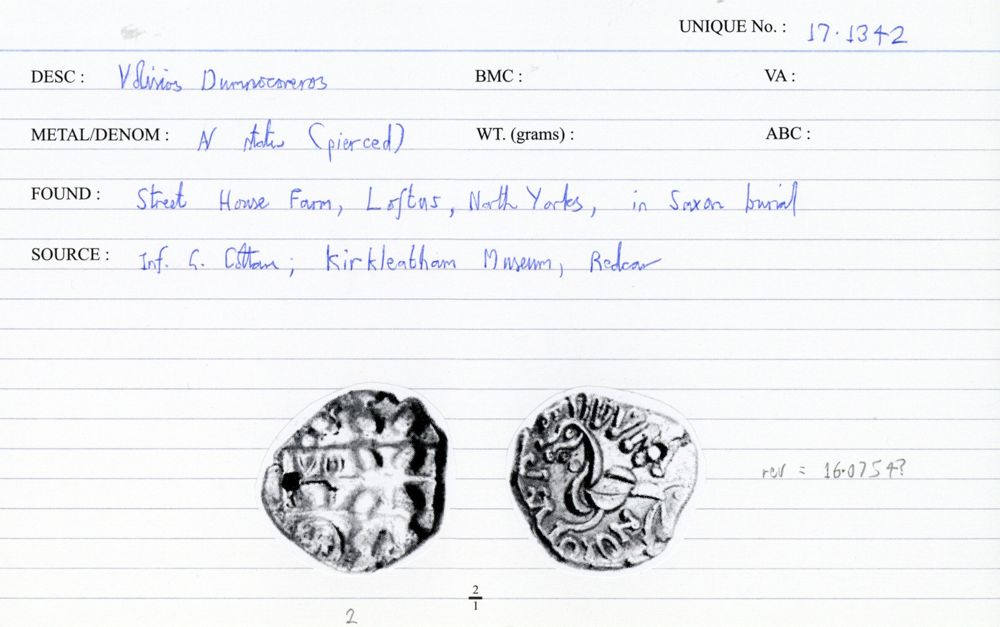 UNIQUE No. : 17·1342
DESC : Volisios Dumnocoveros BMC : VA :
METAL/DENOM : N stater (pierced) WT. (grams) : ABC :
FOUND : Street House Farm, Loftus, North Yorks, in Saxon burial
SOURCE : Inf. G. Cottam; Kirkleatham Museum, Redcar
rev = 16·0754?
2
1
2